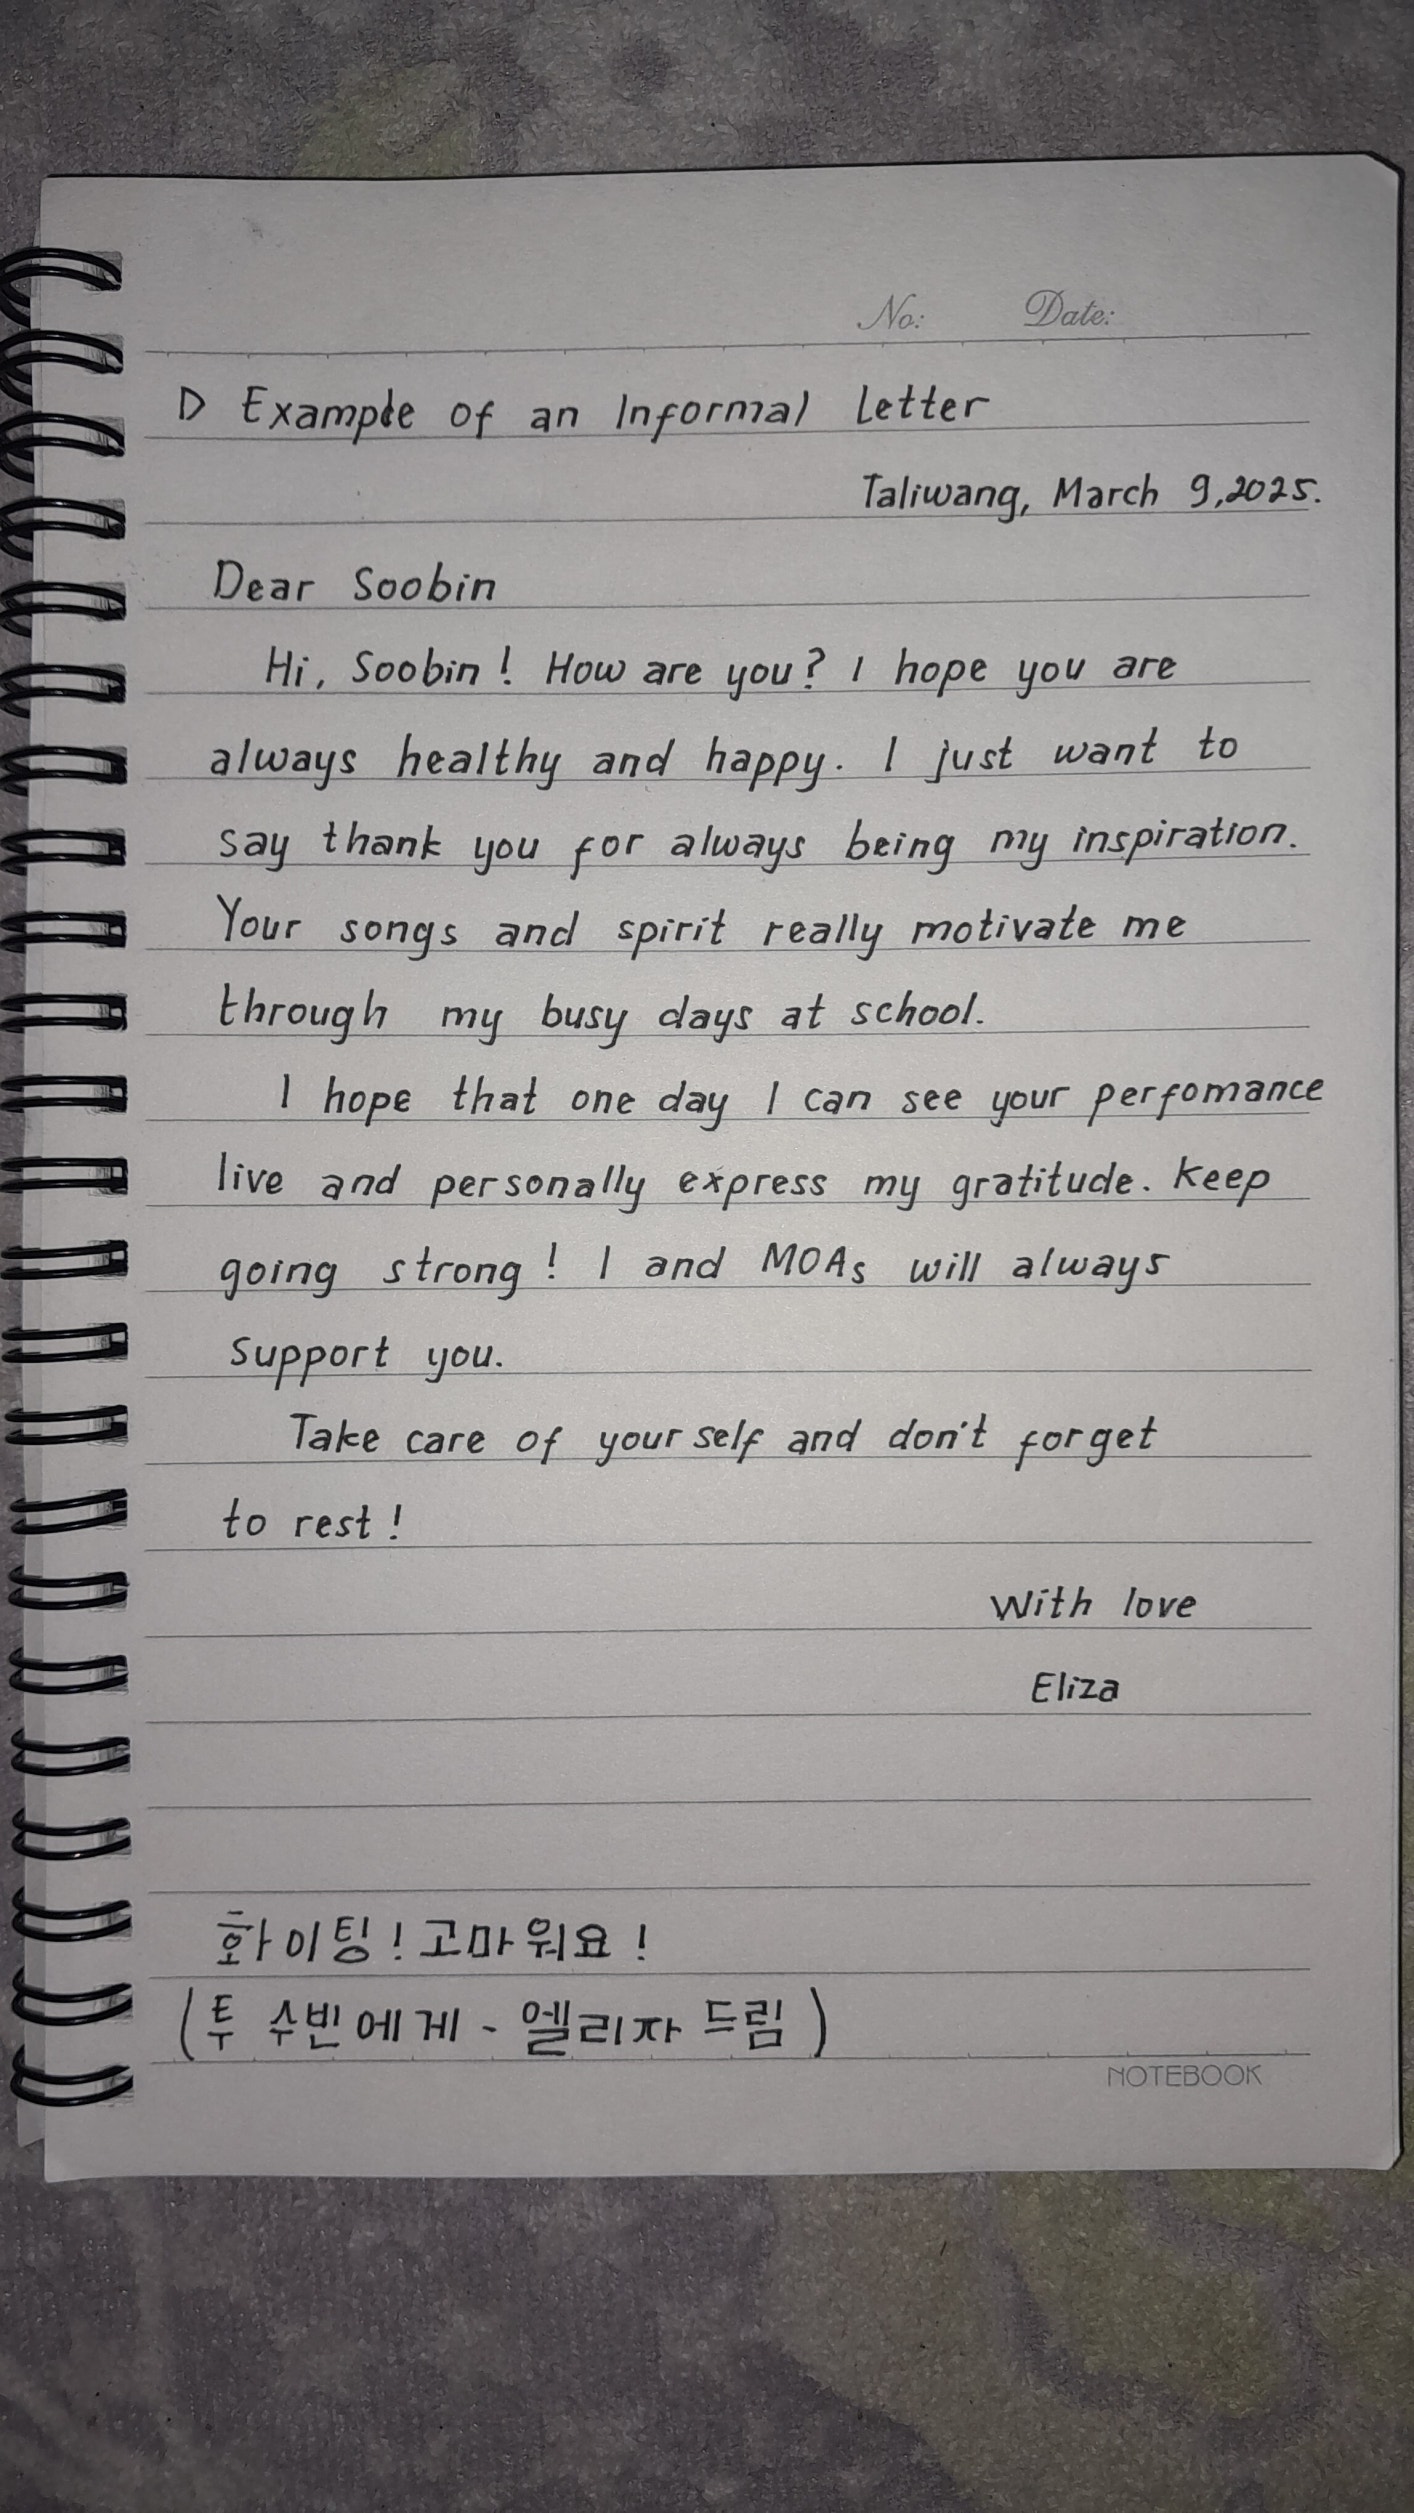 No: Date:
D Example of an Informal Letter
Taliwang, March 9,2025.
Dear Soobin
Hi, Soobin! How are you? I hope you are
always healthy and happy. I just want to
say thank you for always being my inspiration.
Your songs and spirit really motivate me
through my busy days at school.
I hope that one day I can see your perfomance
live and personally express my gratitude. Keep
going strong! I and MOAs will always
support you.
Take care of your self and don't forget
to rest!
With love
Eliza
화이팅! 고마워요!
(투 수빈에게 - 엘리자 드림)
NOTEBOOK